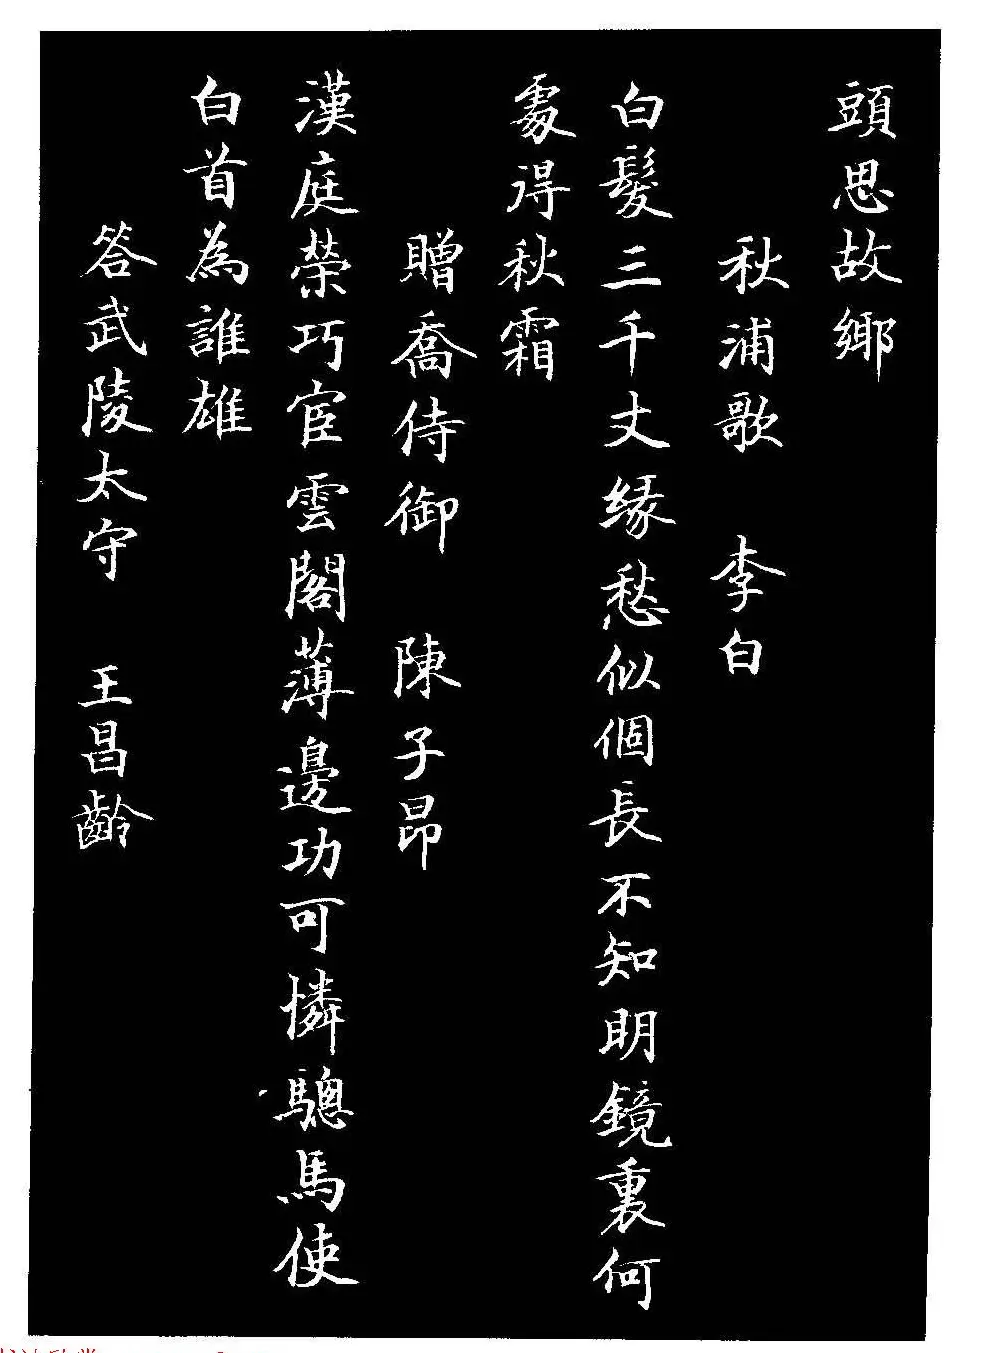 頭思故鄉
秋浦歌 李白
白髮三千丈緣愁似個長不知明鏡裏何
處得秋霜
贈喬侍御 陳子昂
漢庭榮巧宦雲閣薄邊功可憐驄馬使
白首為誰雄
答武陵太守 王昌齡